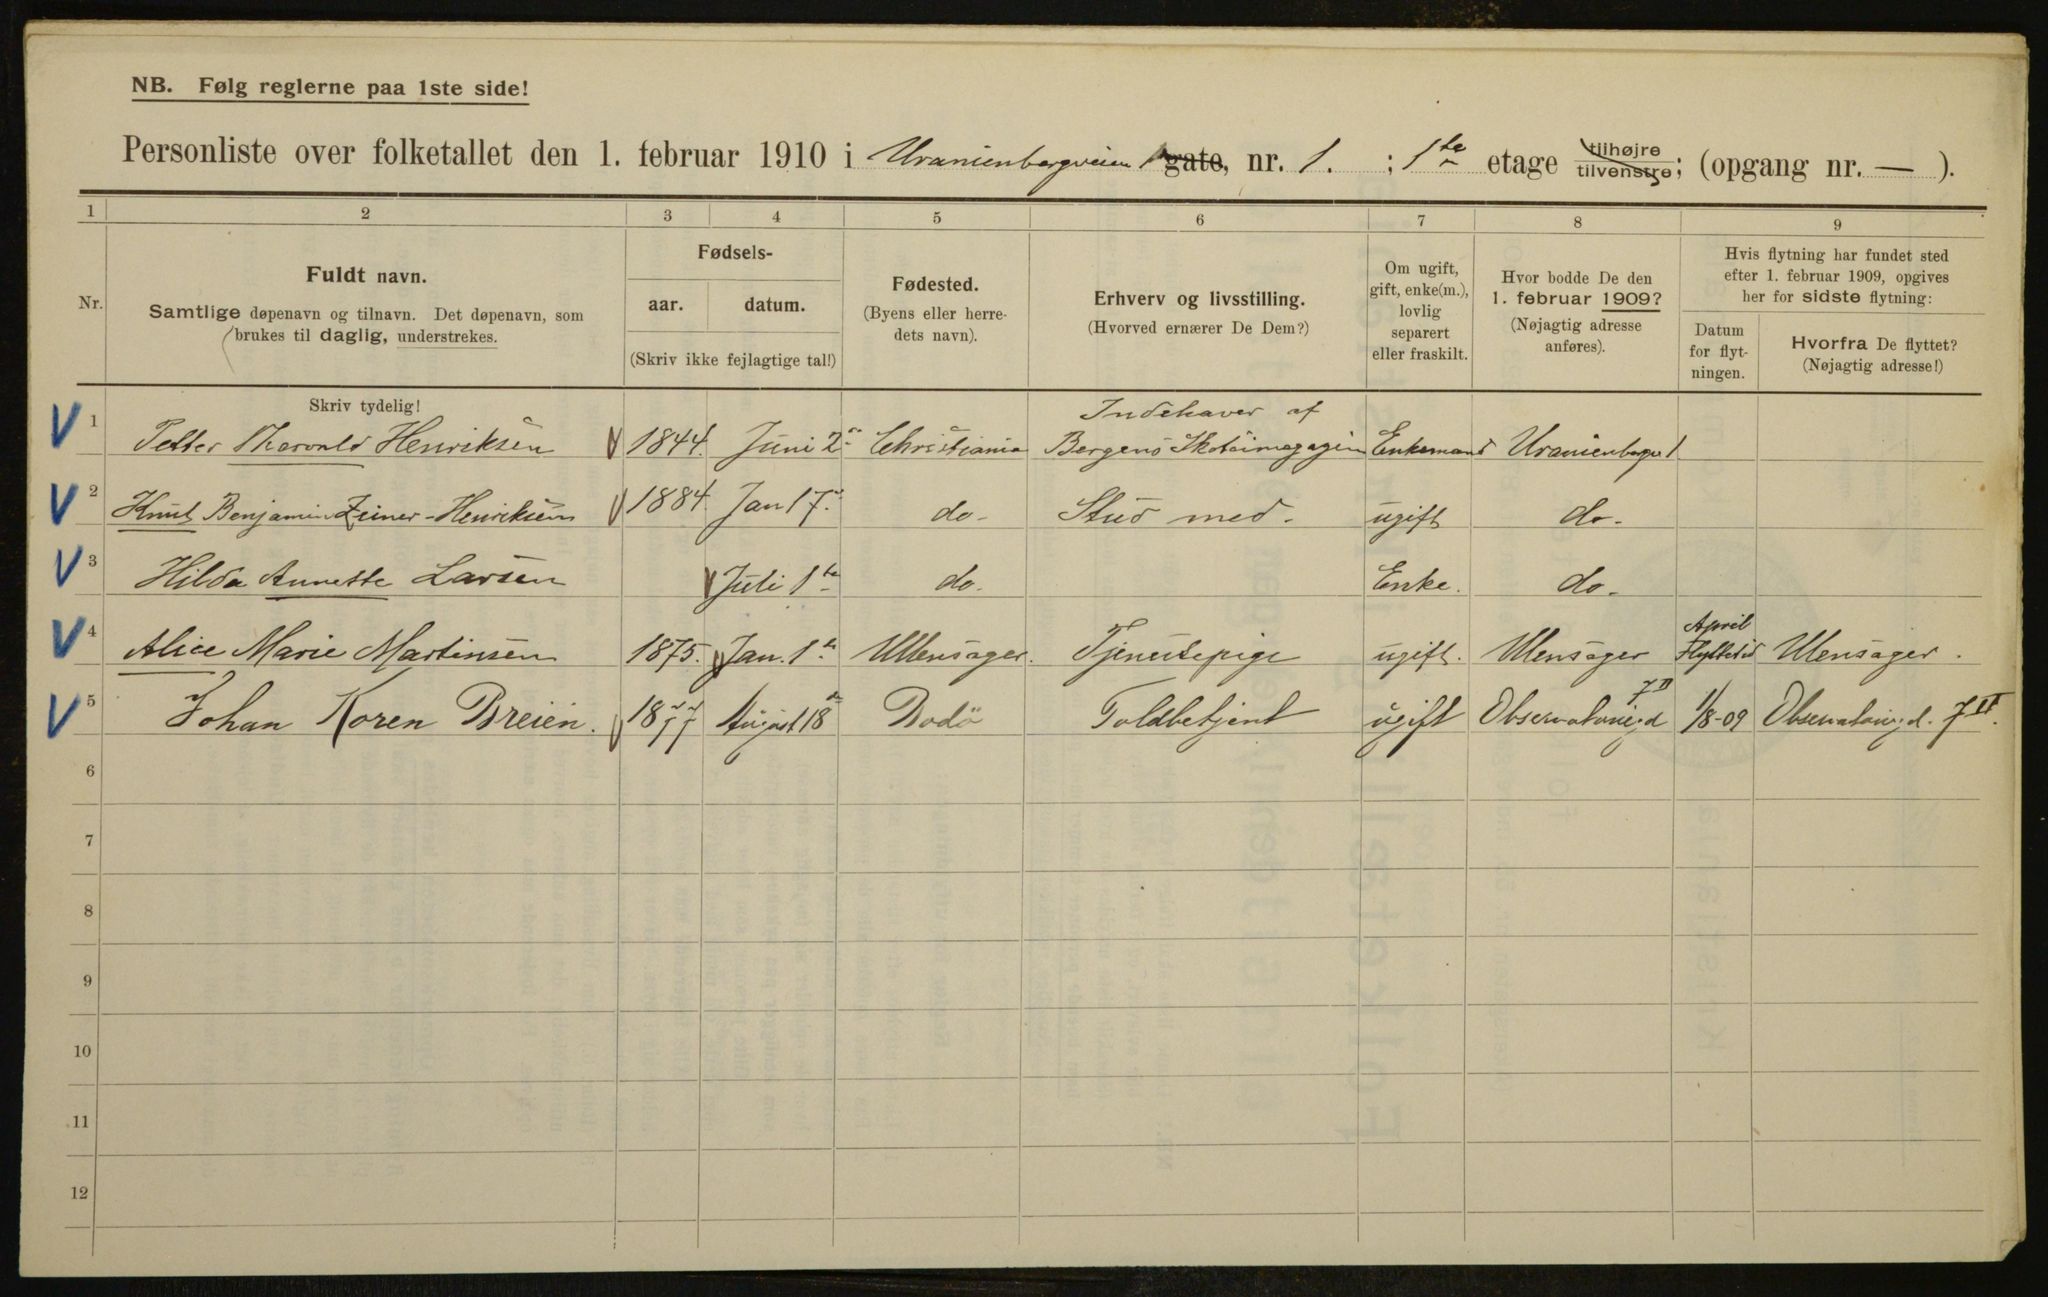 NB. Følg reglerne paa 1ste side!
Personliste over folketallet den 1. februar 1910 i Uranienborgveien gate, nr. 1. ; 1te etage tilhøjre tilvenstre; (opgang nr. — ).
1 2 3 4 5 6 7 8 9
Nr.
Fuldt navn.
Samtlige døpenavn og tilnavn. Det døpenavn, som
brukes til daglig, understrekes.
Fødsels-
aar. datum.
(Skriv ikke fejlagtige tal!)
Fødested.
(Byens eller herre-
dets navn).
Erhverv og livsstilling.
(Hvorved ernærer De Dem?)
Om ugift,
gift, enke(m.),
lovlig
separert
eller fraskilt.
Hvor bodde De den
1. februar 1909?
(Nøjagtig adresse
anføres).
Hvis flytning har fundet sted
efter 1. februar 1909, opgives
her for sidste flytning:
Datum
for flyt-
ningen.
Hvorfra De flyttet?
(Nøjagtig adresse!)
Skriv tydelig!
V 1 Petter Tharvald Henriksen 1844. Juni 2 Christiania Indehaver af Bergens Skotöimagazin Enkemand Uranienborgv 1
V 2 Knut Benjamin Zeiner-Henriksen 1884. Jan 17. do. Stud med. ugift do.
V 3 Hilda Annette Larsen Juli 1te do. Enke. do.
V 4 Alice Marie Martinsen 1875. Jan. 1te Ullensager. Tjenestepige ugift. Ulensager April Flyttetid Ulensager.
V 5 Johan Koren Breien. 1877 August 18de Bodö Toldbetjent ugift Observatoriegd 7II 1/8-09 Observatoriegd. 7II.
6
7
8
9
10
11
12